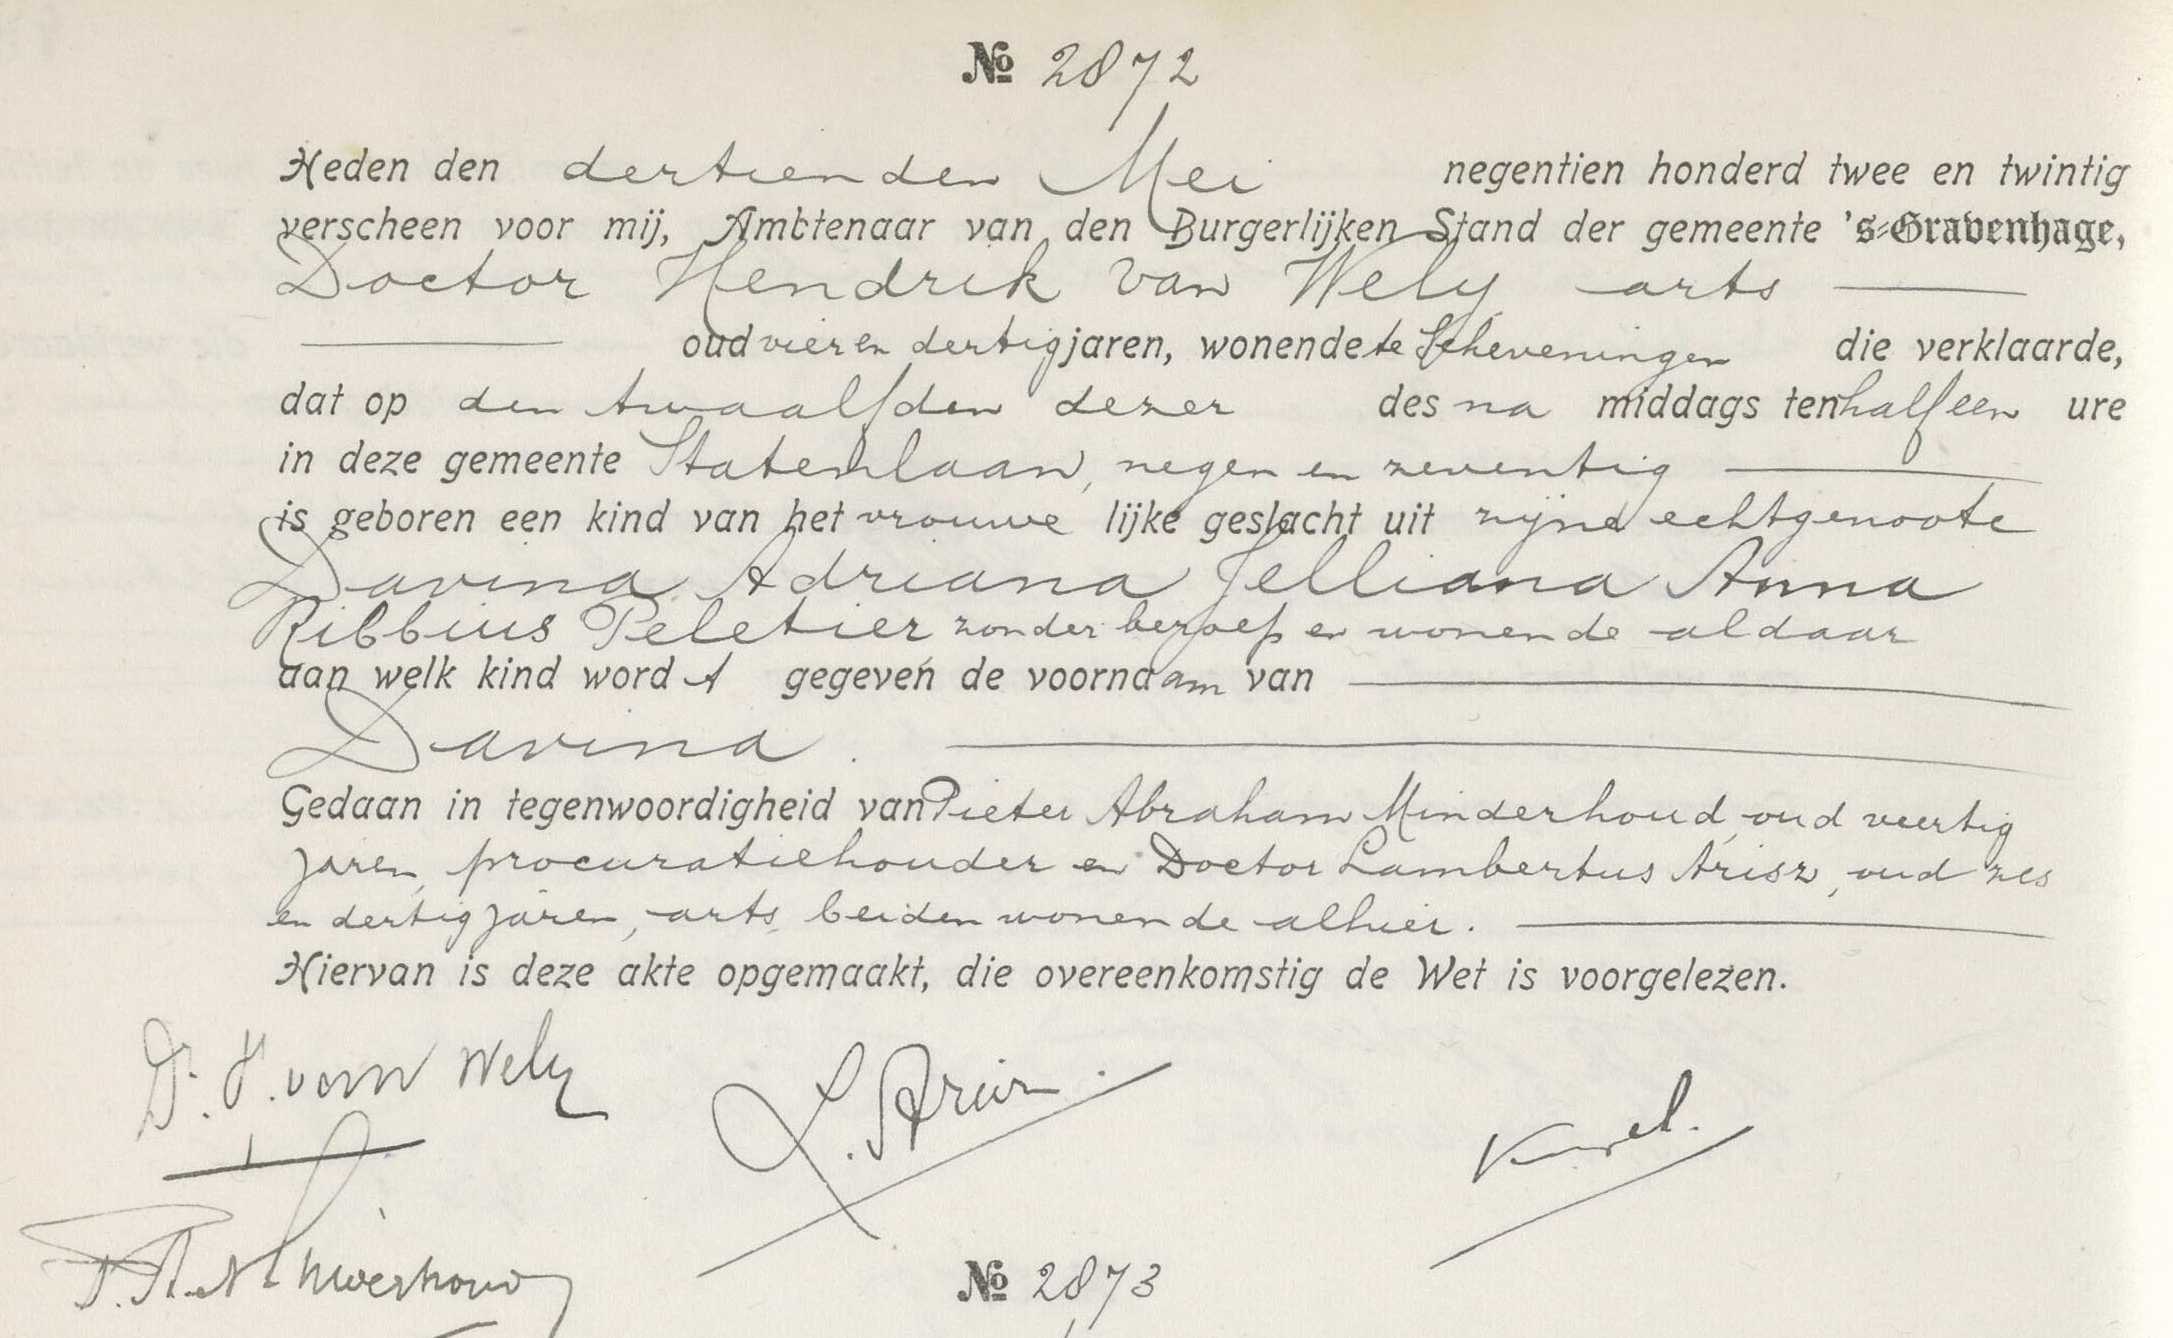 № 2872
Heden den dertienden Mei negentien honderd twee en twintig
verscheen voor mij, Ambtenaar van den Burgerlijken Stand der gemeente 's-Gravenhage,
Doctor Hendrik van Wely, arts
oud vier en dertig jaren, wonende te Scheveningen die verklaarde,
dat op den twaalfden dezer des na middags ten half een ure
in deze gemeente Statenlaan, negen en zeventig
is geboren een kind van het vrouwe lijke geslacht uit zijne echtgenoote
Davina Adriana Jelliana Anna
Ribbius Peletier zonder beroep en wonende aldaar
aan welk kind word t gegeven de voornaam van
Davina.
Gedaan in tegenwoordigheid van Pieter Abraham Minderhoud, oud veertig
jaren, procuratiehouder en Doctor Lambertus Arisz, oud zes
en dertig jaren, arts, beiden wonende alhier.
Hiervan is deze akte opgemaakt, die overeenkomstig de Wet is voorgelezen.
Dr. H. van Wely
L. Arisz.
P. A. Minderhoud
№ 2873